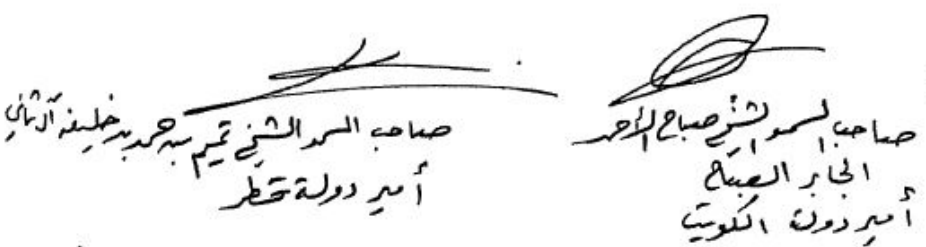 صاحب السمو الشيخ صباح الأحمد
الجابر الصباح
أمير دولة الكويت
صاحب السمو الشيخ تميم بن حمد بن خليفة آل ثاني
أمير دولة قطر